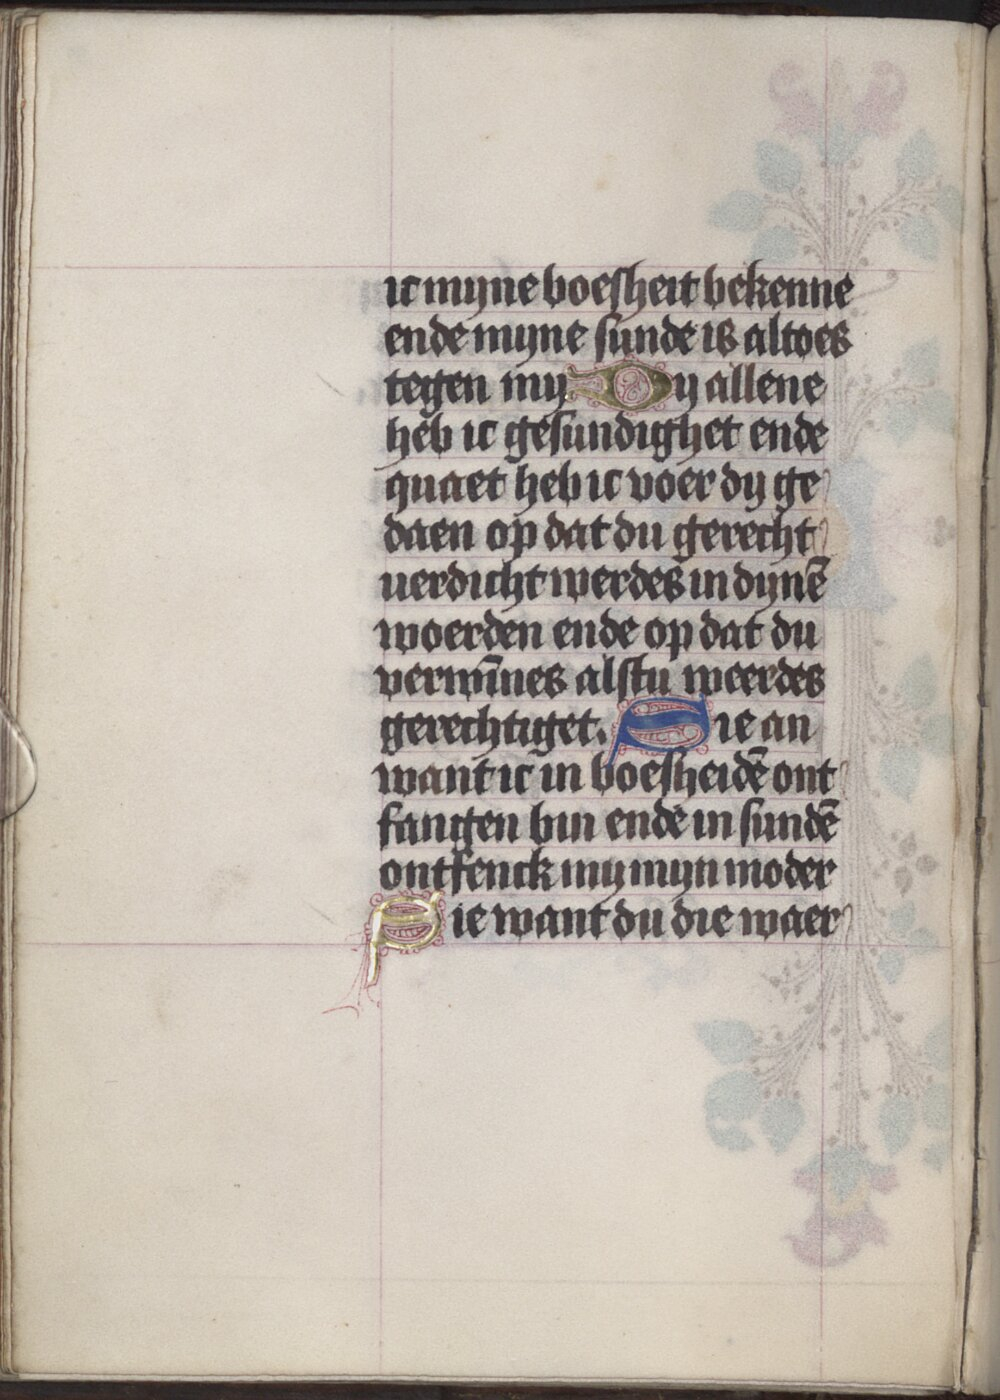 ic myne boesheit bekenne
ende myne sunde is altoes
tegen my Dy allene
heb ic gesundighet ende
quaet heb ic voer dy ge
daen op dat du gerecht
uerdicht werdes in dynē
woerden ende op dat du
verwīnes alstu weerdes
gerechtiget. Sie an
want ic in boesheidē ont
fangen bin ende in sundē
ontfenck my myn moder
Sie want du die waer